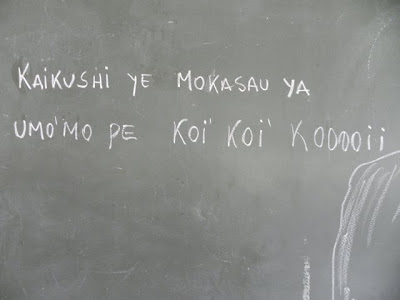 KAIKUSHI YE MOKASAU YA
UMO'MO PE KOI' KOI' KOOOOII